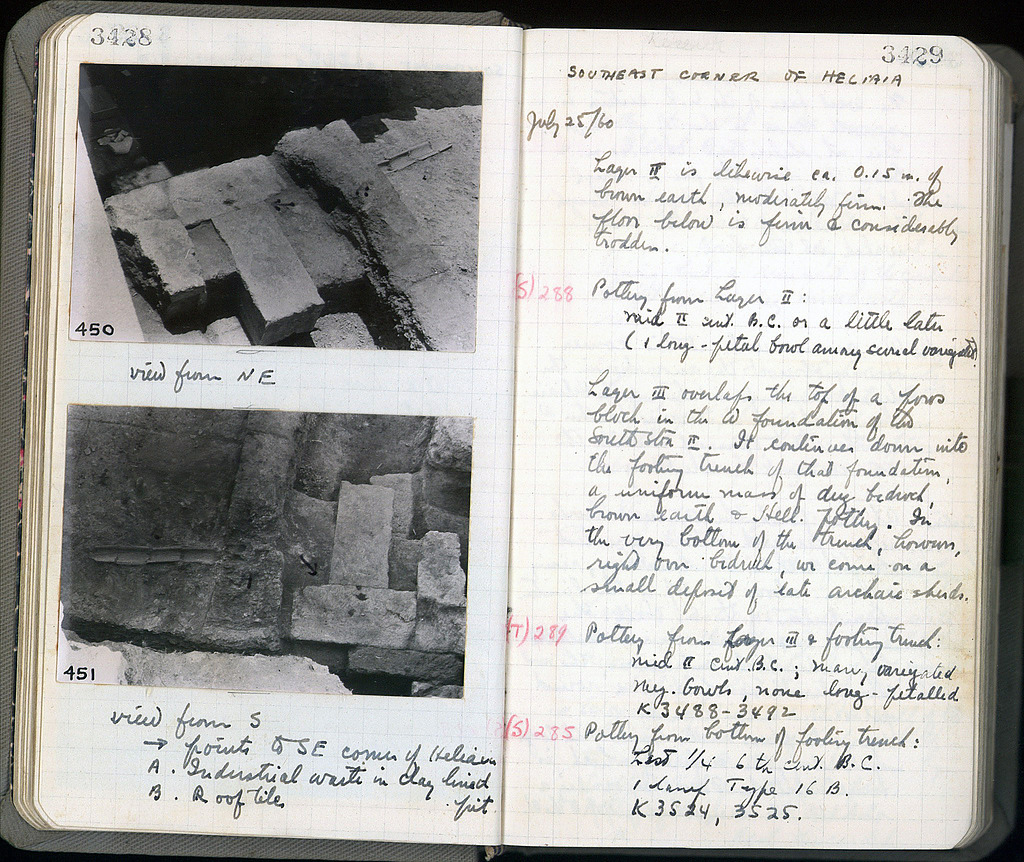 3428
450
view from NE
451
view from S
→ points to SE corner of Heliaia
A. Industrial waste in clay lined
pit.
B. Roof tiles
3429
SOUTHEAST CORNER OF HELIAIA
July 25/60
Layer II is likewise ca. 0.15 m. of
brown earth, moderately firm. The
floor below is firm & considerably
trodden.
(S) 288 Pottery from Layer II:
mid II cent. B.C. or a little later
(1 long-petal bowl among several variegated)
Layer III overlaps the top of a poros
block in the W foundation of the
South Stoa II. It continues down into
the footing trench of that foundation,
a uniform mass of dug bedrock,
brown earth & Hell. pottery. In
the very bottom of the trench, however,
right over bedrock, we come on a
small deposit of late archaic sherds.
(T) 289 Pottery from Layer III & footing trench:
mid II cent. B.C.; many variegated
Meg. bowls, none long-petalled
K 3488-3492
(S) 285 Pottery from bottom of footing trench:
Last 1/4 6th cent. B.C.
1 lamp Type 16 B.
K 3524, 3525.